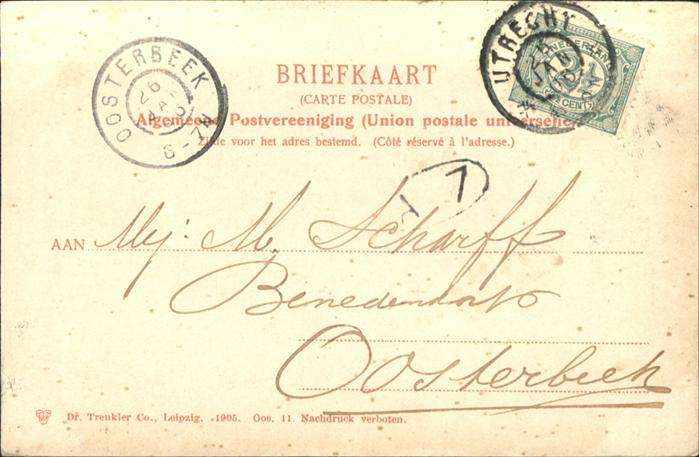 OOSTERBEEK
26
6-7
UTRECHT
26
JAN
BRIEFKAART
(CARTE POSTALE)
Algemeene Postvereeniging (Union postale universelle)
Zijde voor het adres bestemd. (Côté réservé à l'adresse.)
AAN Mej: M. Scharff
Benedendorp
Oosterbeek
Dr. Trenkler Co., Leipzig. 1905. Oos. 11. Nachdruck verboten.